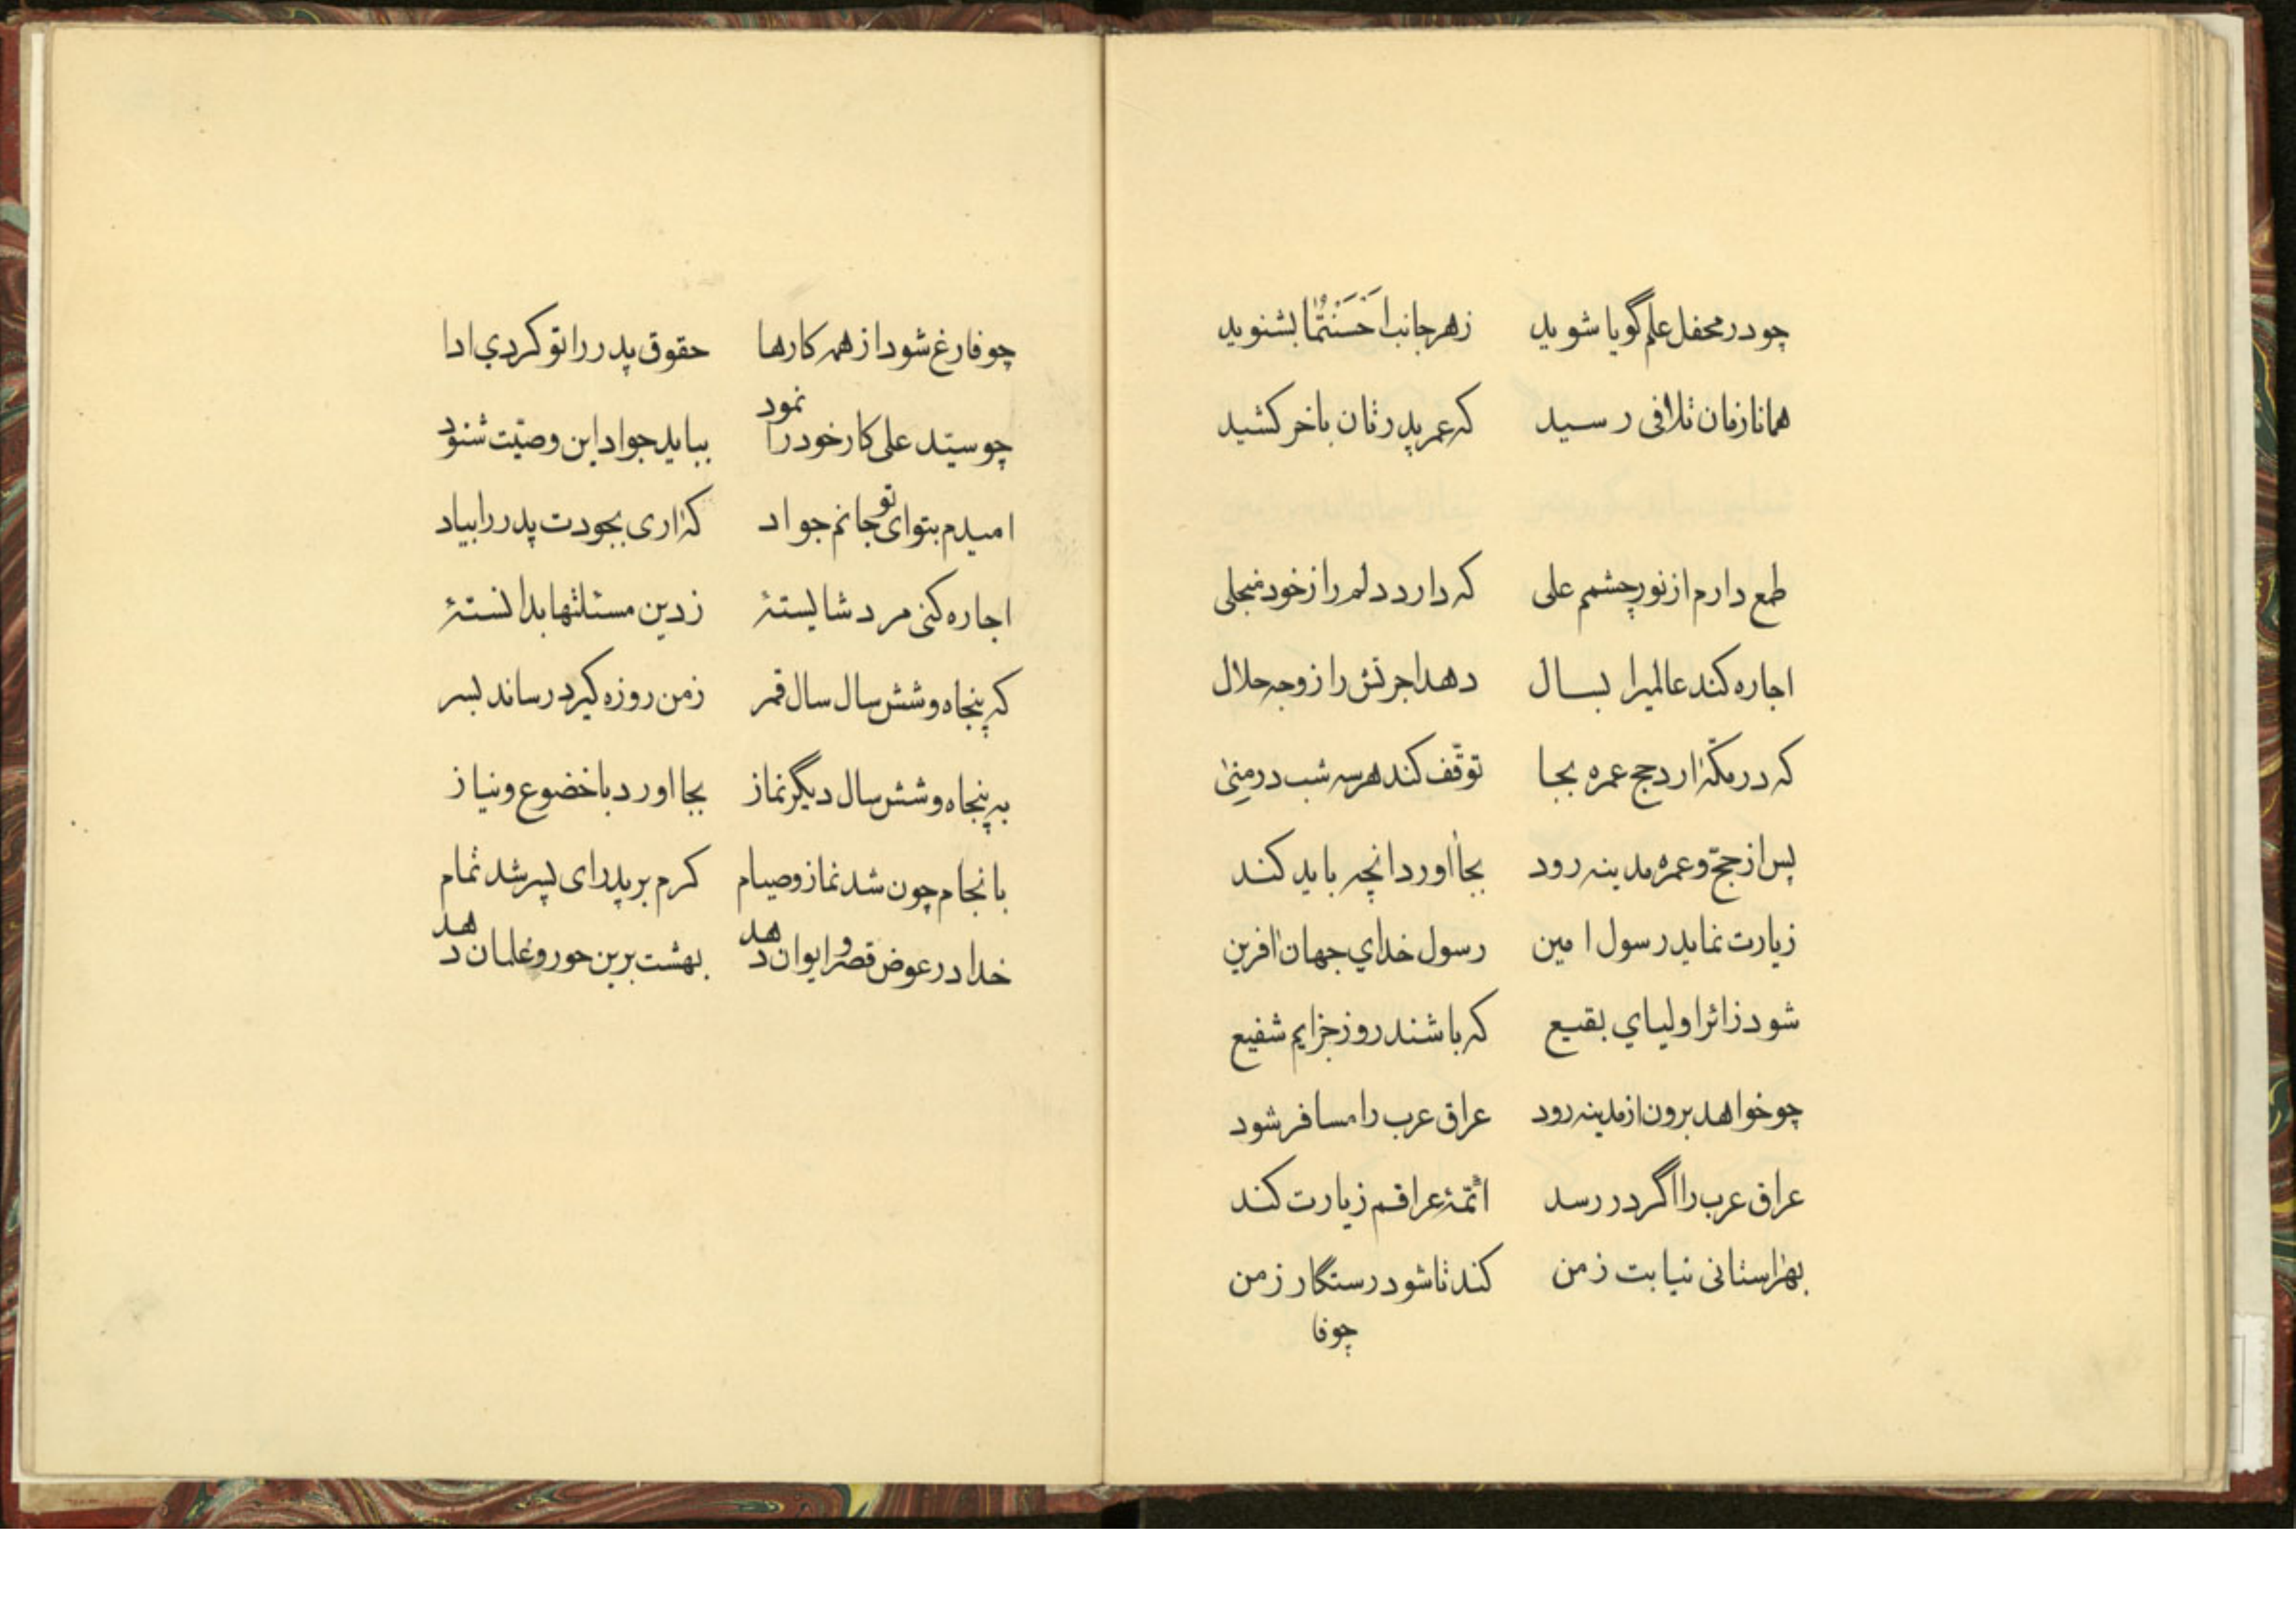 چو در محفل علم گویا شوید زهر جانب اَحْسَنْتُمٰا بشنوید
همانا زمان تلافی رسید که عمر پدرتان باخر کشید
طمع دارم از نور چشمم علی که دارد دلم را ز خود منجلی
اجاره کند عالمیرا بسال دهد اجرتش را ز وجه حلال
که در مکّه ارد حج عمره بجا توقّف کند هر سه شب در مِنیٰ
پس از حجّ و عمره مدینه رود بجا اورد انچه باید کند
زیارت نماید رسول امین رسول خداي جهان افرین
شود زائر اولیاي بقیع که باشند روز جزایم شفیع
چو خواهد برون از مدینه رود عراق عرب را مسافر شود
عراق عرب را اگر در رسد ائمّۀ عراقم زیارت کند
بهر استانی نیابت ز من کند تا شود رستگار ز من
چو فا
چو فارغ شود از همه کارها حقوق پدر را تو کردي ادا
چو سیّد علی کار خود را نمود بباید جواد این وصیّت شنود
امیدم بتو ای تو جانم جواد که اری بجودت پدر را بیاد
اجاره کنی مرد شایستۀ ز دین مسئلتها بدانستۀ
که پنجاه و شش سال سال قمر ز من روزه گیرد رساند بسر
به پنجاه و شش سال دیگر نماز بجا اورد با خضوع و نیاز
بانجام چون شد نماز و صیام کرم بر پدر ای پسر شد تمام
خدا در عوض قصر و ایوان دهد بهشت برین حور و غلمان دهد